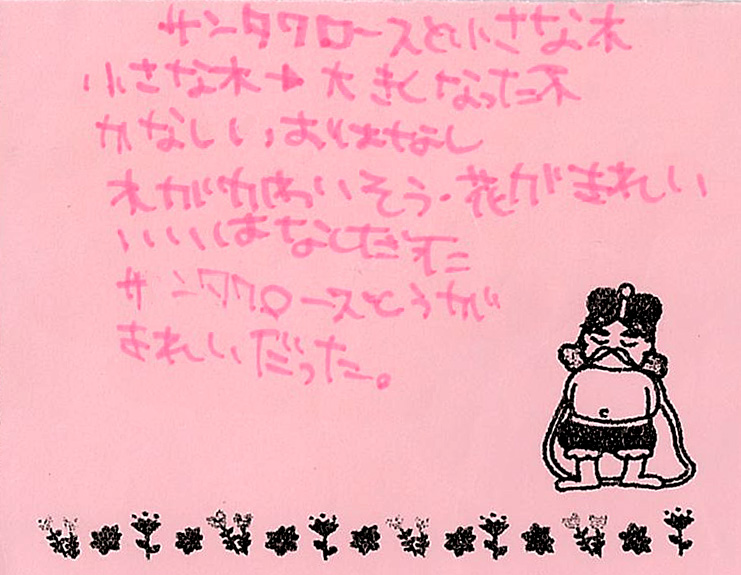 サンタクロースと小さな木
小さな木→大きくなった木
かなしいおはなし
木がかわいそう・花がきれい
いいはなしだった
サンタクロースとうが
きれいだった。